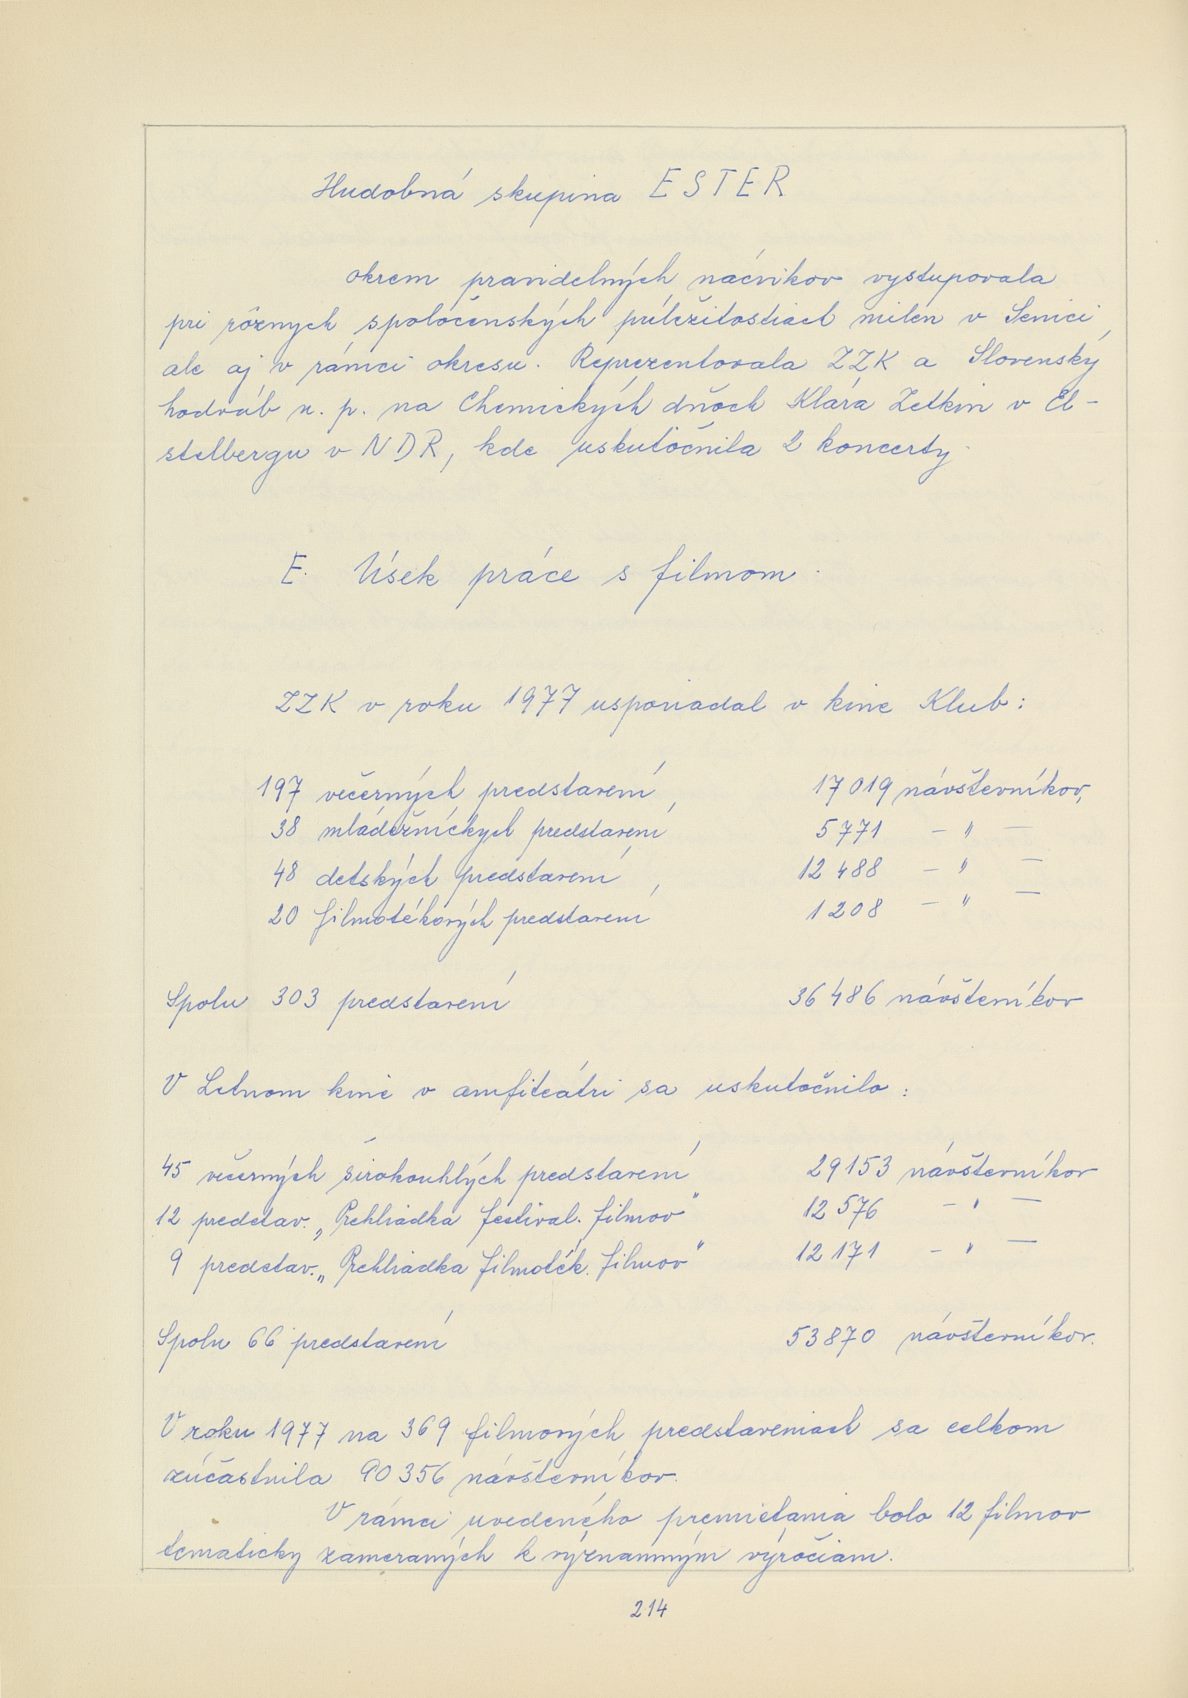 Hudobná skupina ESTER
okrem pravidelných nácvikov vystupovala
pri rôznych spoločenských príležitostiach nielen v Senici,
ale aj v rámci okresu. Reprezentovala ZZK a Slovenský
hodváb n. p. na Chemických dňoch Klára Zetkin v El-
stelbergu v NDR, kde uskutočnila 2 koncerty.
E. Úsek práce s filmom.
ZZK v roku 1977 usporiadal v kine Klub:
197 večerných predstavení, 17 019 návštevníkov,
38 mládežníckych predstavení 5 771 — " —
48 detských predstavení, 12 488 — " —
20 filmotékových predstavení 1 208 — " —
Spolu 303 predstavení 36 486 návštevníkov
V Letnom kine v amfiteátri sa uskutočnilo:
45 večerných širokouhlých predstavení 29 153 návštevníkov
12 predstav. „Prehliadka festival. filmov" 12 576 — " —
9 predstav. „Prehliadka filmoték. filmov" 12 171 — " —
Spolu 66 predstavení 53 870 návštevníkov.
V roku 1977 na 369 filmových predstaveniach sa celkom
zúčastnila 90 356 návštevníkov.
V rámci uvedeného premietania bolo 12 filmov
tematicky zameraných k významným výročiam.
214